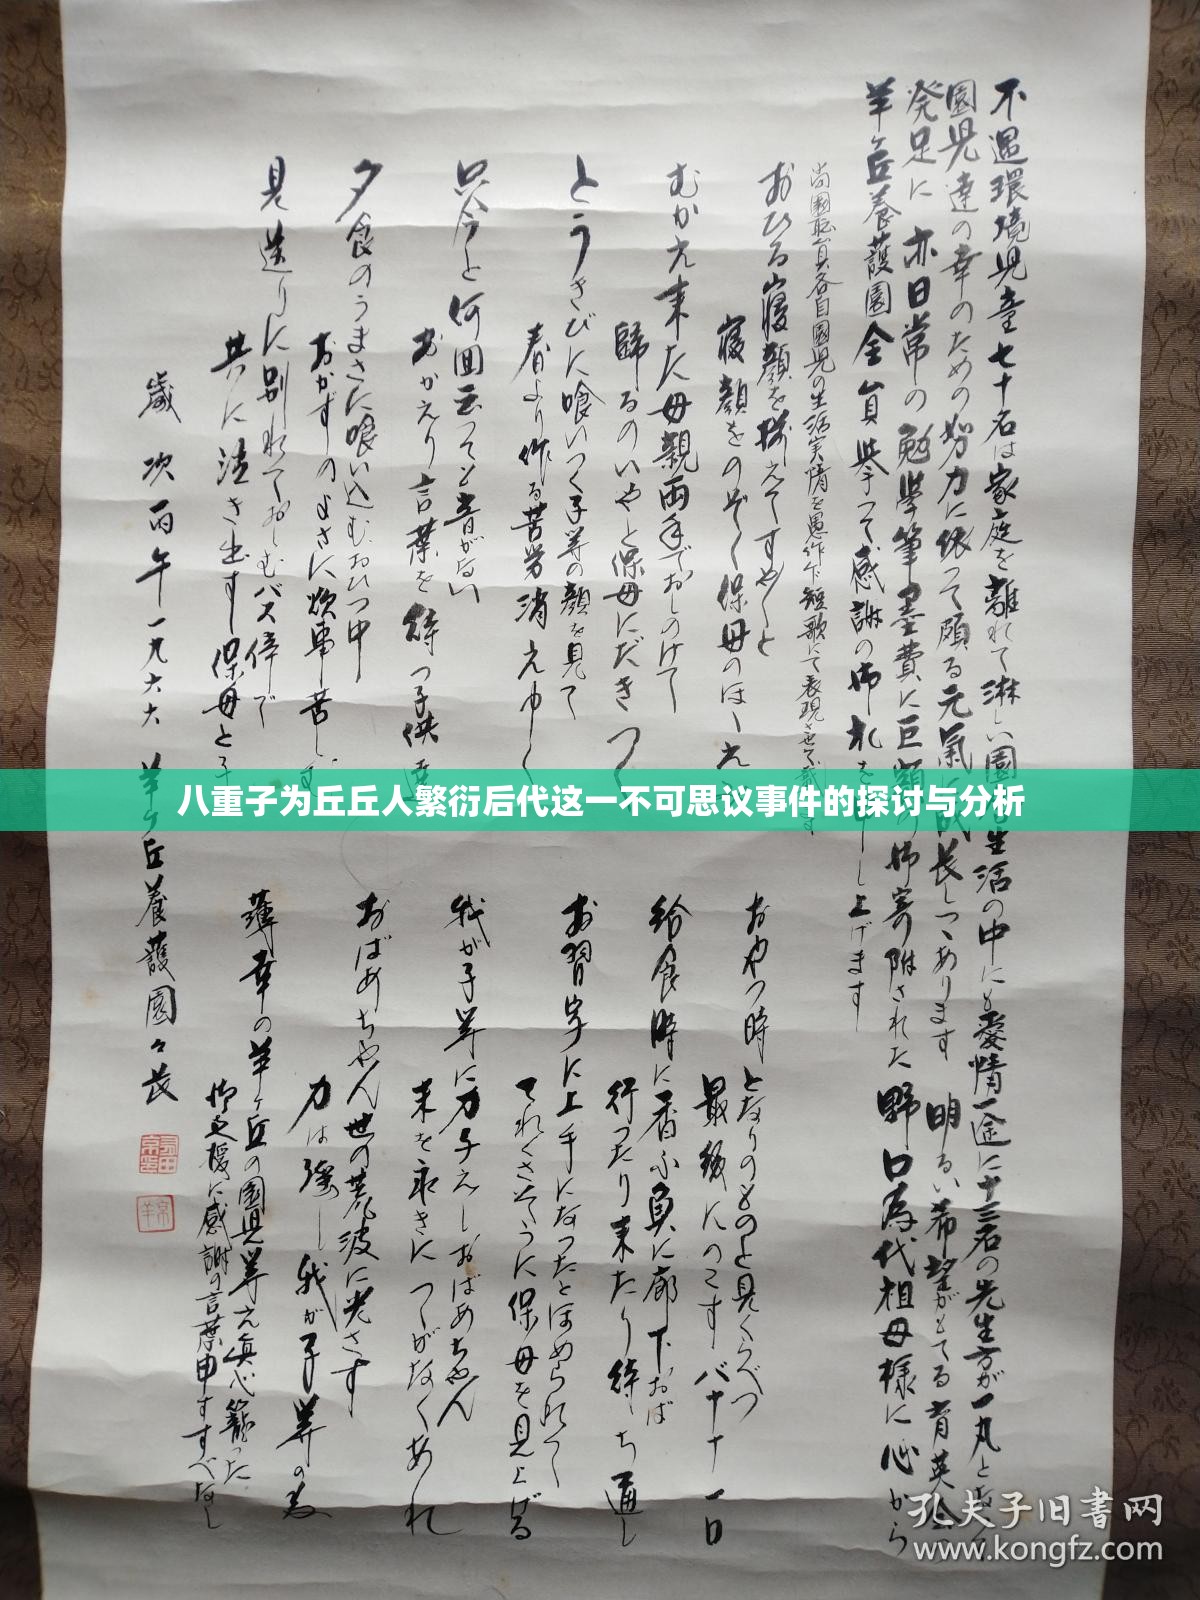 不遇環境児童七十名は家庭を離れて淋しい園 生活の中にも愛情一途に十三名の先生方が一丸となって
園児達の幸のための努力に依って頗る元氣に成長しつゝあります 明るい希望がもてる育英会
発足に亦日常の勉学筆墨費に巨額の御寄附された野口為代祖母様に心から
羊ヶ丘養護園全員挙って感謝の御礼を申し上げます
尚園職員各自園児の生活実情を愚作乍短歌にて表現させて戴きます
おひる寝顔を揃えてすやすやと
寝顔をのぞく保母のほゝえみ
むかえ来た母親両手でおしのけて
歸るのいやと保母にだきつく
とうきびに喰いつく子等の顔を見て
春より作る苦労消えゆく
只今と何回云っても音がない
おかえり言葉を待つ子供達
夕食のうまさに喰い込むおひつ中
おかずのよさに炊事苦し
見送りに別れておしむバス停で
共に泣き出す保母と子
歳次丙午一九六六 羊ヶ丘養護園々長
八重子为丘丘人繁衍后代这一不可思议事件的探讨与分析
おやつ時となりのものと見くらべつ
最後にのこす八十一日
給食時に香り負に廊下おば
行ったり来たり待ち通し
お習字に上手になったとほめられて
てれくさそうに保母を見上げる
我が子等に力子えしおばあちゃん
来を永きにつゝがなくあれ
おばあちゃん世の荒波に光さす
力は強し我が子等の為
薄幸の羊ヶ丘の園児等え真心籠った
御支援に感謝の言葉申すすべなし
孔夫子旧书网
www.kongfz.com